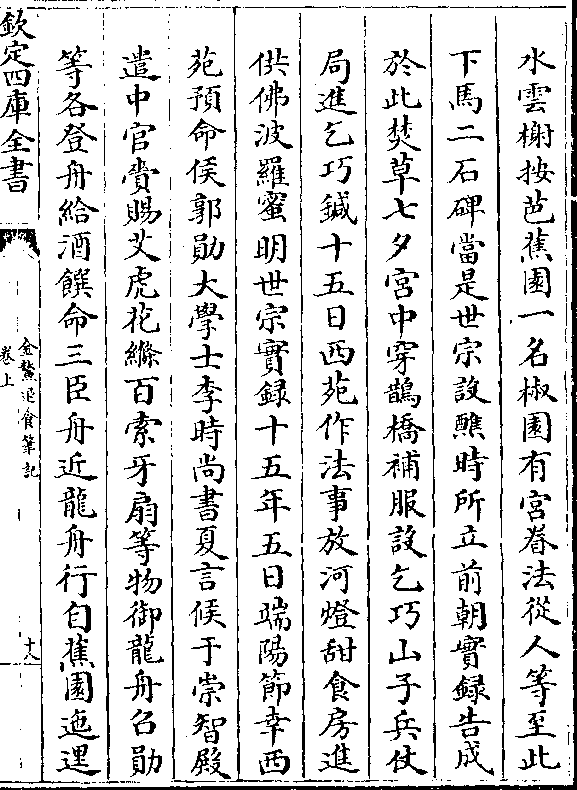 水雲榭按芭蕉園一名椒園有宮眷法從人等至此
下馬二石碑當是世宗設醮時所立前朝實録告成
於此焚草七夕宮中穿鵲橋補服設乞巧山子兵仗
局進乞巧鍼十五日西苑作法事放河燈甜食房進
供佛波羅蜜明世宗實録十五年五日端陽節幸西
苑預命侯郭勛大學士李時尚書夏言候于崇智殿
遣中官賫賜艾虎花縧百索牙扇等物御龍舟召勛
等各登舟給酒饌命三臣舟近龍舟行自蕉園迤邐
欽定四庫全書
金鰲退食筆記
卷上
十八